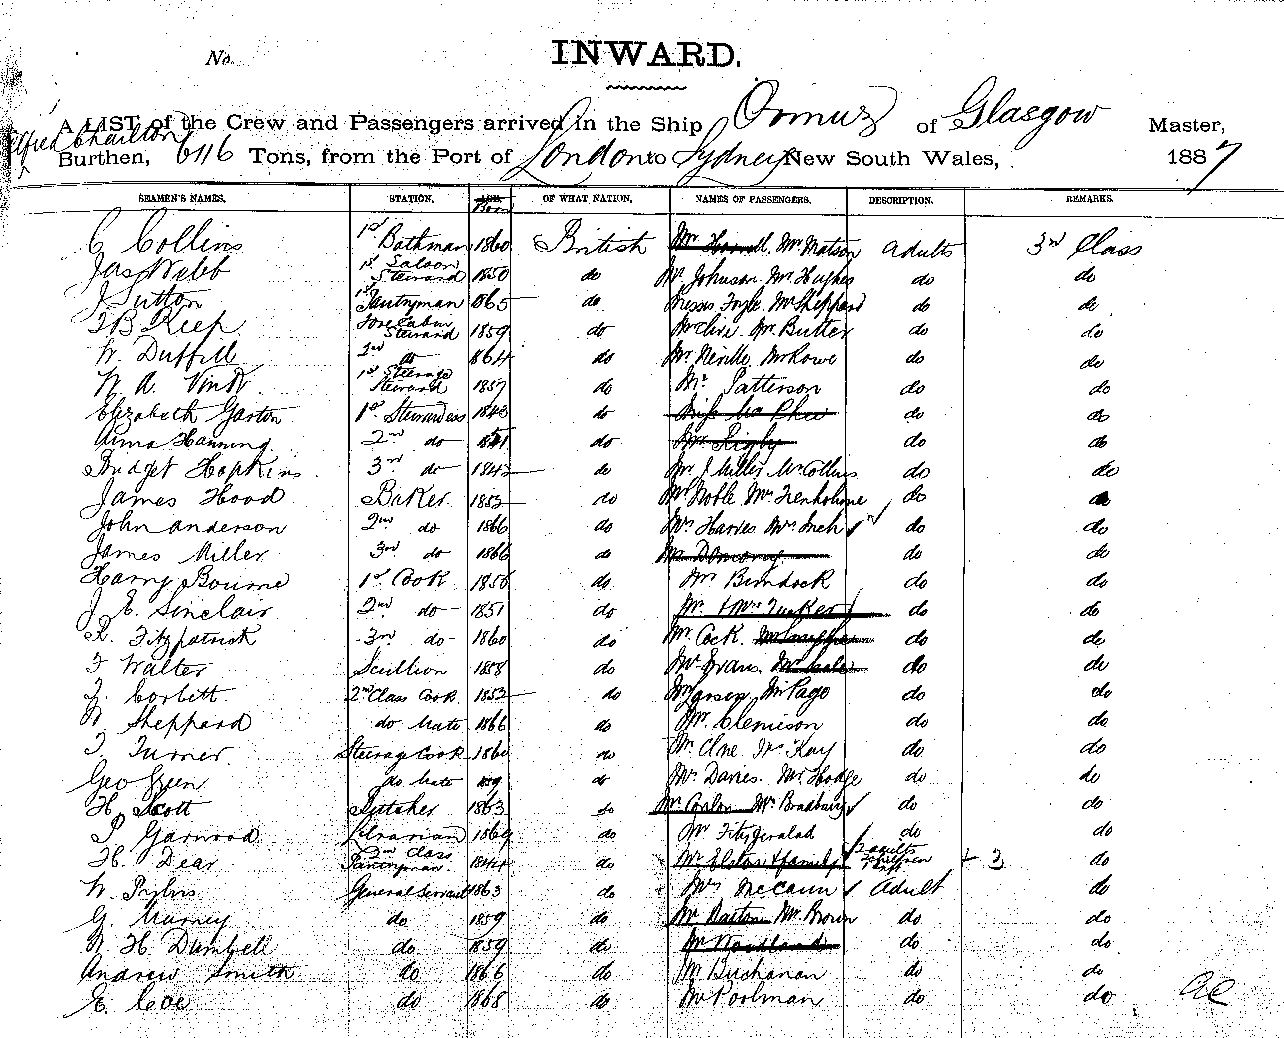 No.
INWARD.
A LIST of the Crew and Passengers arrived in the Ship Ormuz of Glasgow Master,
Alfred Charlton
Burthen, 6116 Tons, from the Port of London to Sydney New South Wales, 1887
SEAMEN'S NAMES. STATION. AGE. OF WHAT NATION. NAMES OF PASSENGERS. DESCRIPTION. REMARKS.
Born
C Collins 1st Bathman 1860 British Mr Mr Matson Adults 3rd Class
Jas Webb 1st Saloon Steward 1850 do Mr Johnson Mr Hughes do do
J Sutton 1st Pantryman 1865 do Messrs Foyle Mr Sheppard do do
T B Keep Fore Cabin Steward 1859 do Mr Clive Mr Butter do do
W. Duffill 2nd do 1864 do Mr Neville Mr Rowe do do
W A Vink 1st Steerage Steward 1857 do Mr Patterson do do
Elizabeth Garton 1st Stewardess 1843 do Miss Mc Phee do do
Anna Hanning 2nd do do Mr Rigby do do
Bridget Hopkins 3rd do 1842 do Mr J Miller Mr Collins do do
James Hood Baker 1852 do Mr Noble Mr Trenholme do do
John Anderson 2nd do 1866 do Mr Harris Mr Inch do do
James Miller 3rd do 1866 do Mr do do
Harry Bourne 1st Cook 1856 do Mr Burdock do do
J. E. Sinclair 2nd do 1851 do Mr & Mrs Tucker do do
R. Fitzpatrick 3rd do 1860 do Mr Cock. Mr do do
F Walter Scullion 1858 do Mr Evans Mr do do
J. Corbett 2nd Class Cook 1852 do Mr Larsen Mr Page do do
W. Sheppard do Mate 1866 do Mr Clemison do do
T. Turner Steerage Cook 1860 do Mr Clne Mr Kay do do
Geo Green do Mate 1859 do Mr Davies Mr Hodge do do
H. Scott Butcher 1863 do Mr Conlon Mr Bradbury do do
P Garwood Librarian 1869 do Mr Fitzgerald do do
H. Dear 2nd Class Pantryman 1844 do Mr Elston & family 2 adults children + 3 do
W. General Servant 1863 do Mrs McCann Adult do
G. Marney do 1859 do Mr Barton Mr Brown do do
W H Dumbell do 1859 do Mr Woodland do do
Andrew Smith do 1866 do Mr Buchanan do do
E. Coe do 1868 do Mr Poolman do do